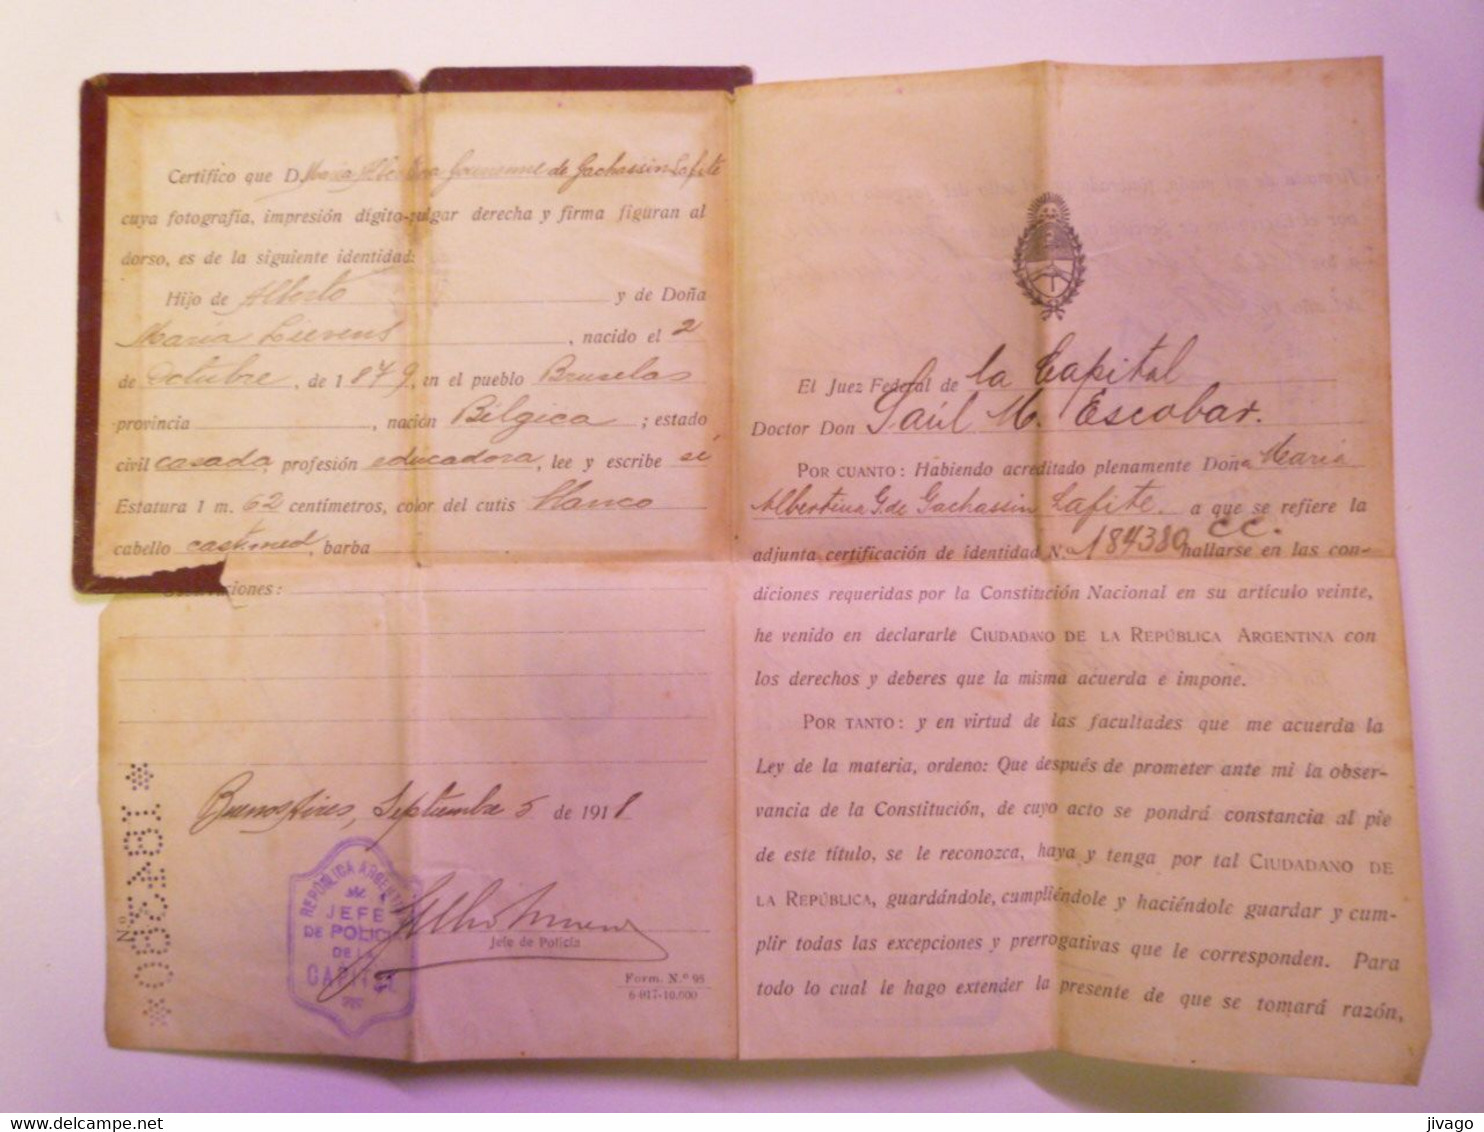 Certifico que D. Maria Albertina de Gachassin Lafite
cuya fotografía, impresión dígito-pulgar derecha y firma figuran al
dorso, es de la siguiente identidad:
Hijo de Alberto y de Doña
Maria Lievens, nacido el 2
de Octubre, de 1879, en el pueblo Bruselas
provincia , nación Bélgica ; estado
civil casada, profesión educadora, lee y escribe si
Estatura 1 m. 62 centímetros, color del cutis blanco
cabello , barba
ciones:
Buenos Aires, Septiembre 5 de 1918
REPÚBLICA ARGENTINA
JEFE
DE POLICIA
DE LA
CAPITAL
Jefe de Policía
Form. N.º 95
6-917-10.000
Nº
*184380*
El Juez Federal de la Capital
Doctor Don Saúl M. Escobar.
POR CUANTO: Habiendo acreditado plenamente Doña Maria
Albertina G. de Gachassin Lafite. a que se refiere la
adjunta certificación de identidad N.º 184380 C.C. hallarse en las con-
diciones requeridas por la Constitución Nacional en su artículo veinte,
he venido en declararle CIUDADANO DE LA REPÚBLICA ARGENTINA con
los derechos y deberes que la misma acuerda e impone.
POR TANTO: y en virtud de las facultades que me acuerda la
Ley de la materia, ordeno: Que después de prometer ante mi la obser-
vancia de la Constitución, de cuyo acto se pondrá constancia al pie
de este título, se le reconozca, haya y tenga por tal CIUDADANO DE
LA REPÚBLICA, guardándole, cumpliéndole y haciéndole guardar y cum-
plir todas las excepciones y prerrogativas que le corresponden. Para
todo lo cual le hago extender la presente de que se tomará razón,
delcampe.net
jivago